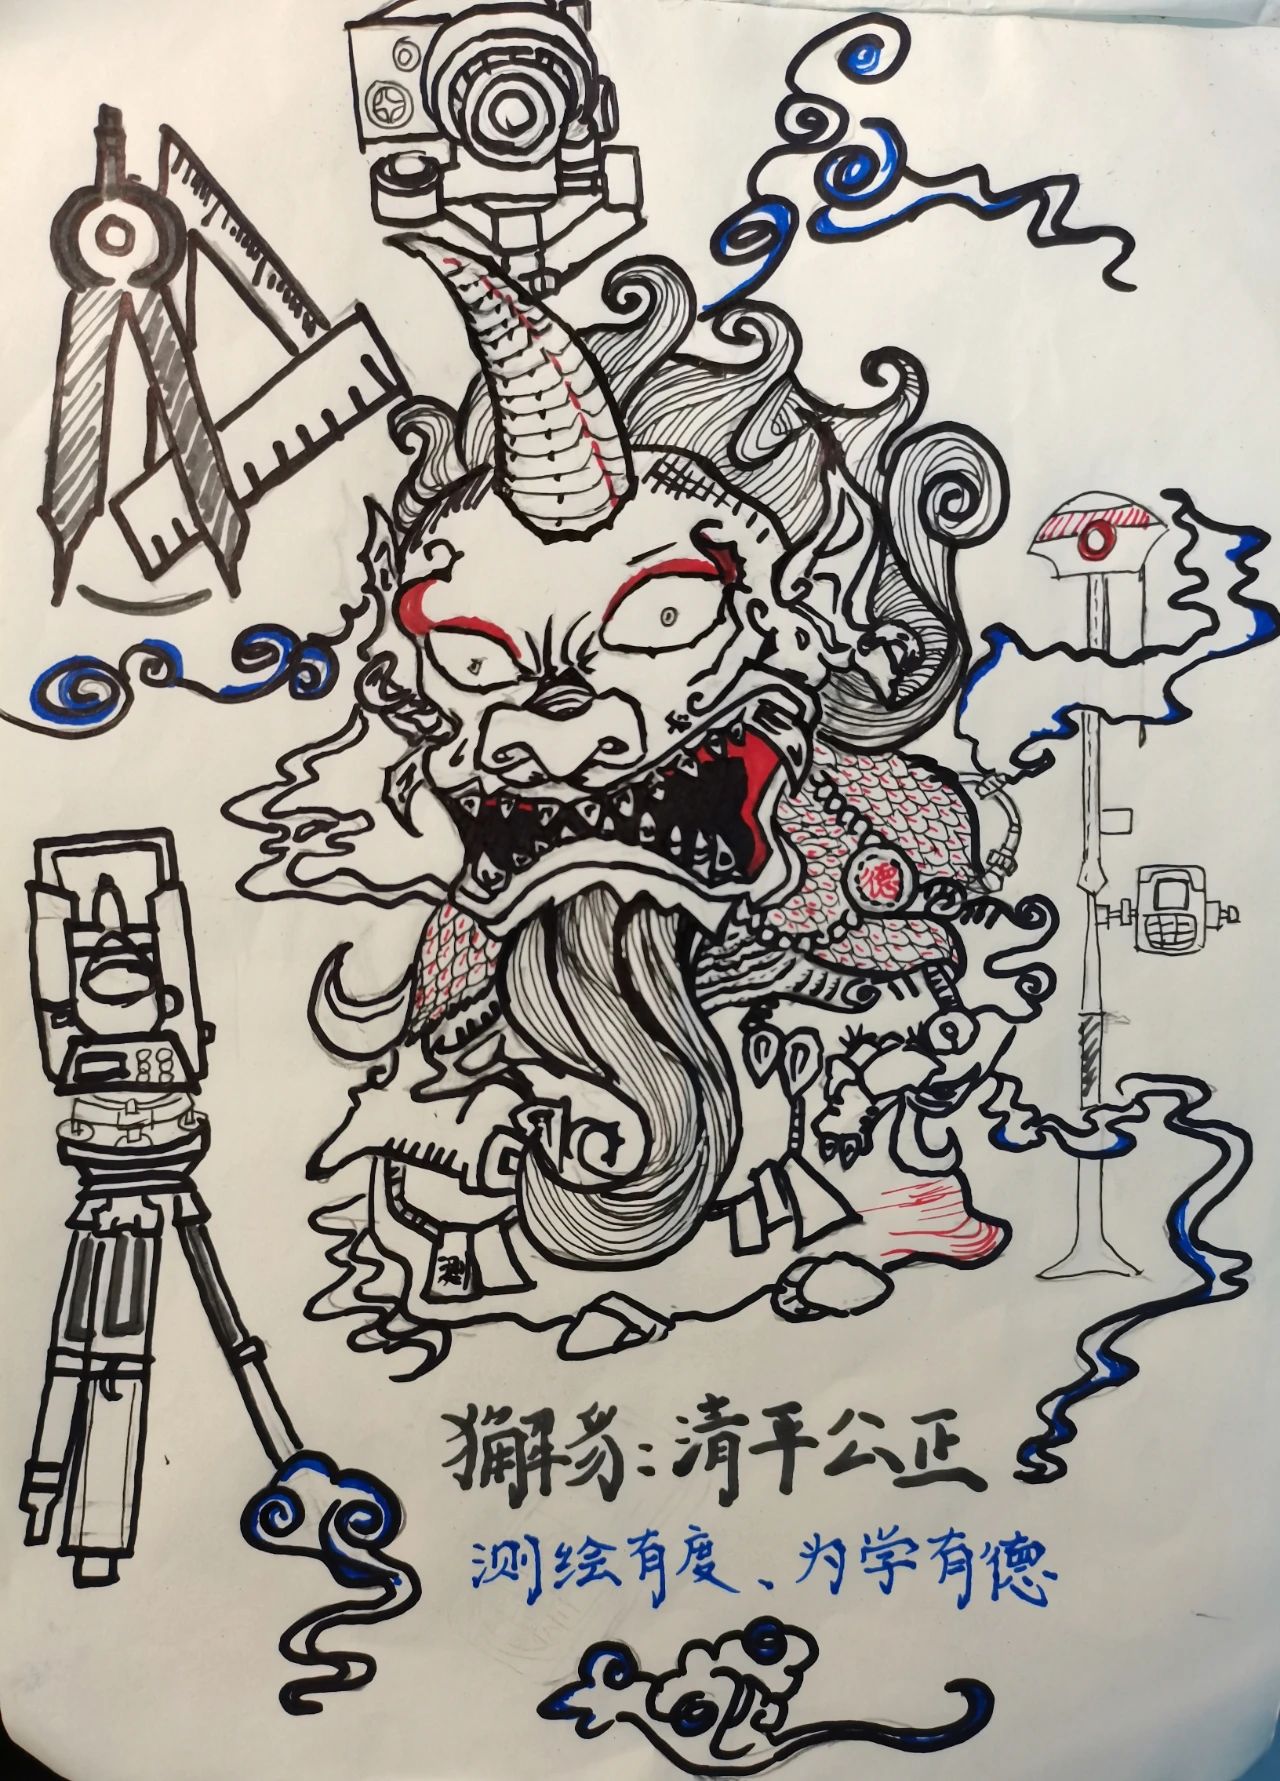 德
测
獬豸:清平公正
测绘有度、为学有德